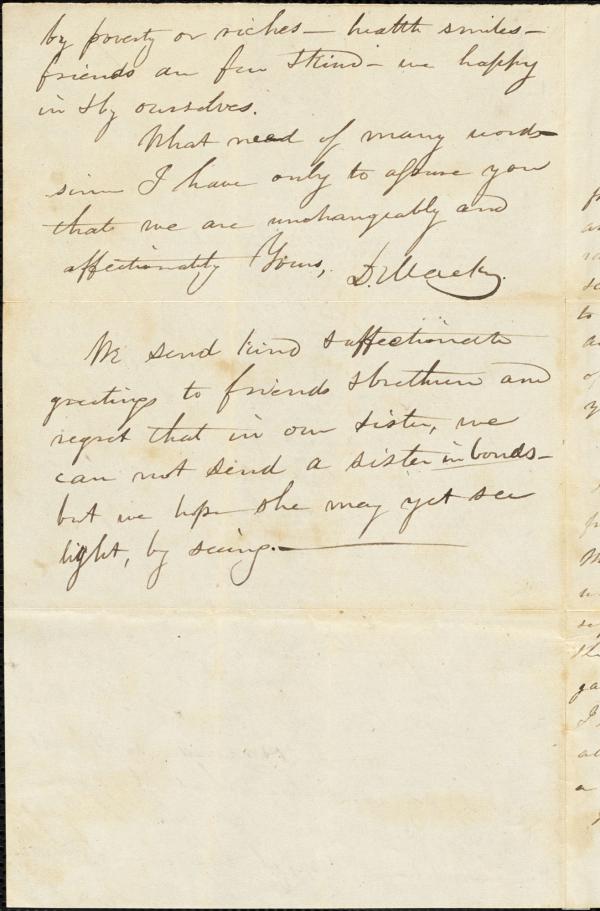 by poverty or riches — health smiles —
friends are few & kind — we happy
in & by ourselves.
What need of many words
since I have only to assure you
that we are unchangeably and
affectionately Yours, D. Mack.
We send kind & affectionate
greetings to friends & brethren and
regret that in our sister, we
can not send a sister in bonds —
but we hope she may yet see
light, by seeing. —